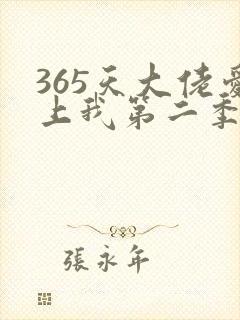 365天大佬爱
上我第二季
張永年